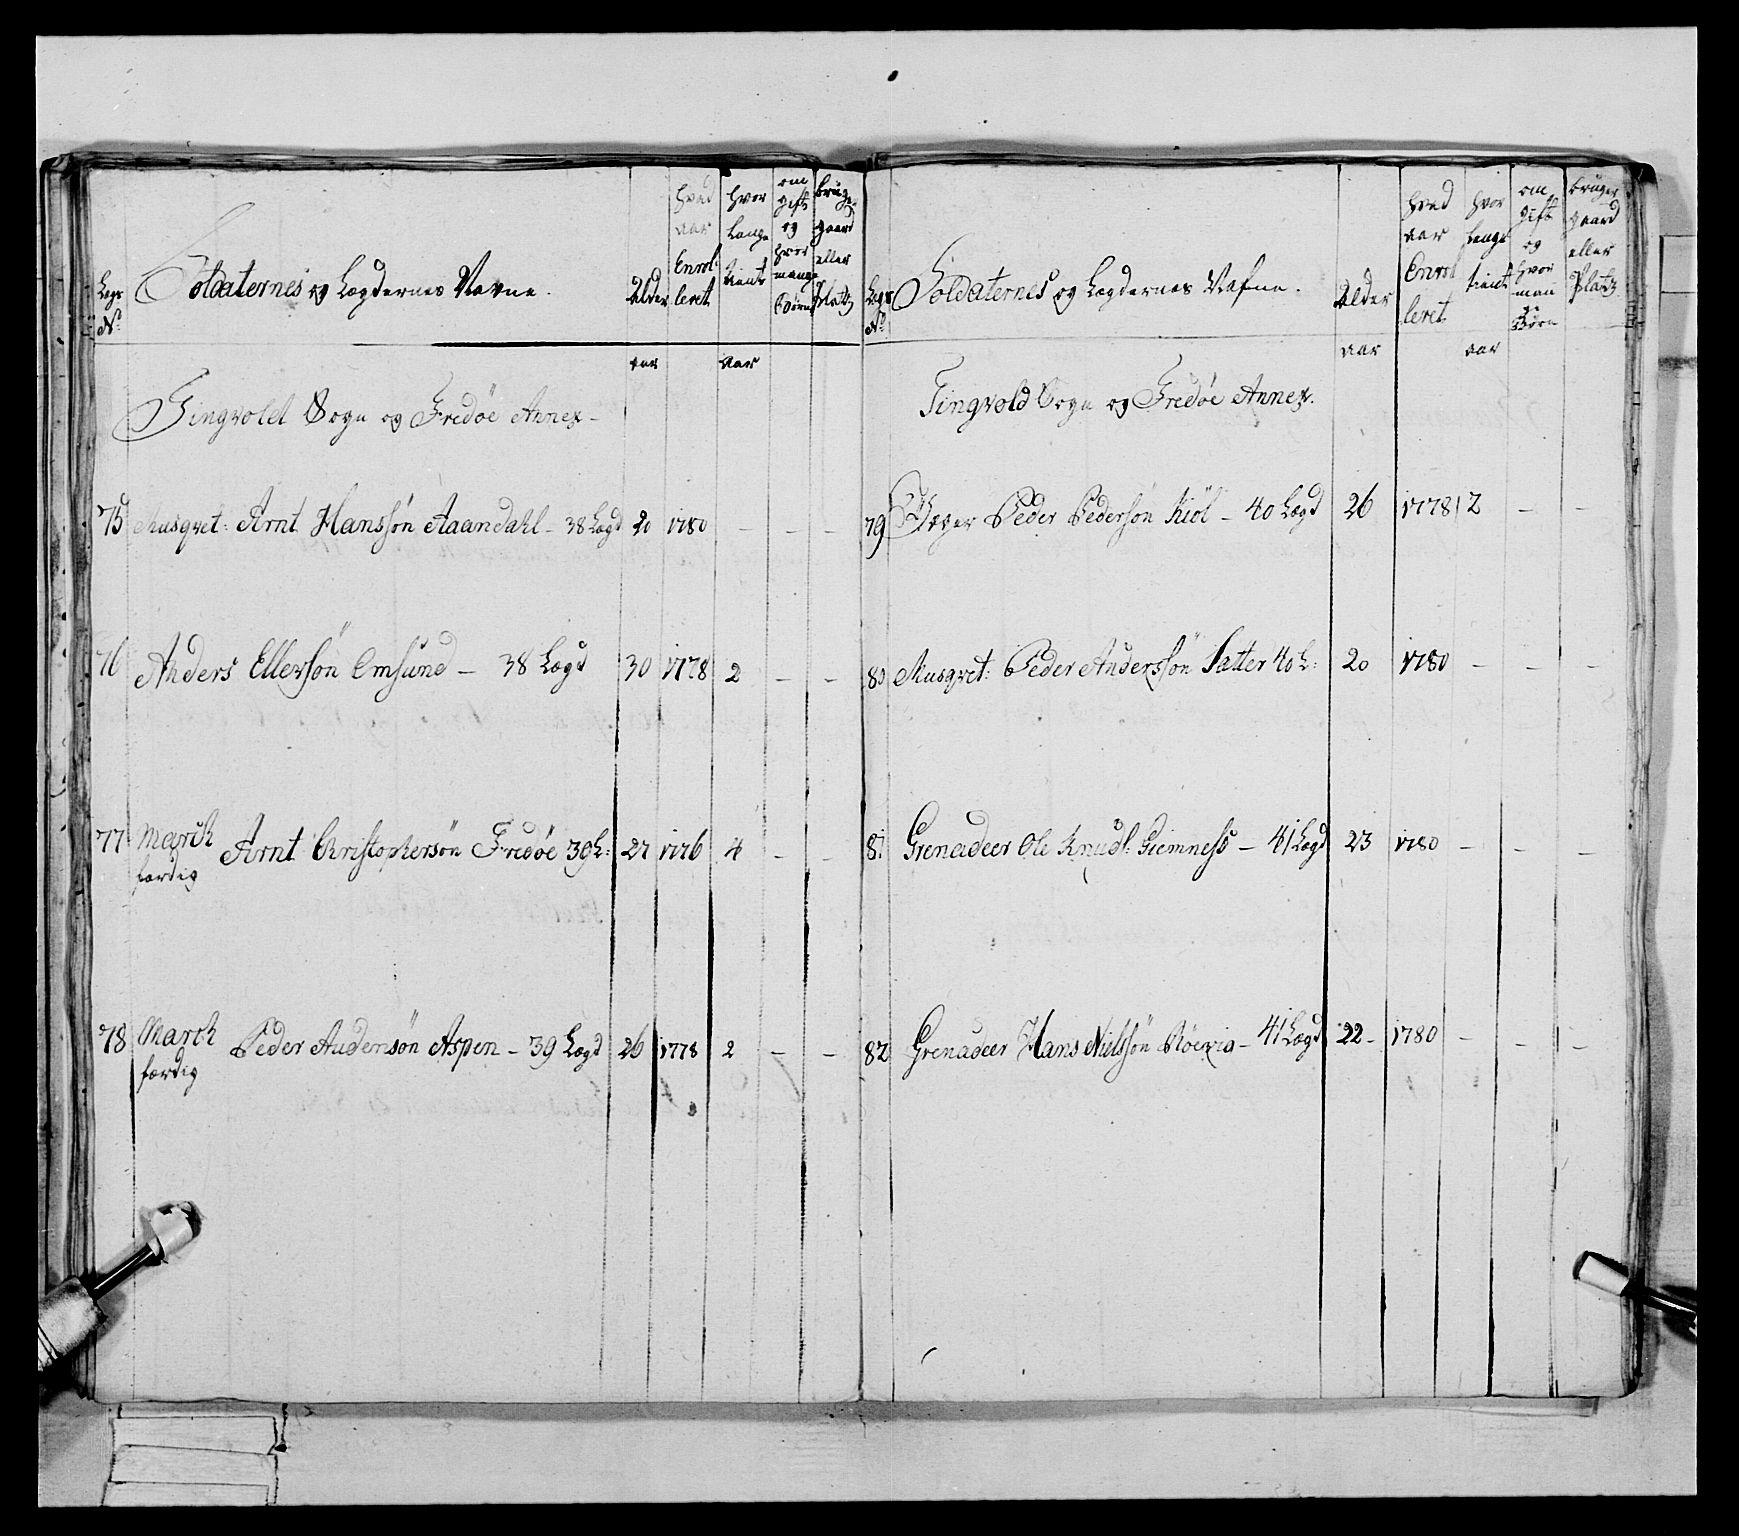 Legs No Soldaternes og Lægdernes Navne. Alder hvad aar Enrolleret hvor lenge tient om gift og hvor mange Børn bruger gaard eller Platz
aar aar
Tingvold Sogn og Fredøe Annex -
75 Musqvet: Arnt Hanssøn Aaandahl - 38 Lægd 20 1780 - - -
76 Anders Ellefsøn Omsund - 38 Lægd 30 1778 2 - -
77 March færdig Arnt Christophersøn Fredøe 39 L: 27 1776 4 - -
78 March færdig Peder Andersøn Aspen - 39 Lægd 26 1778 2 - -
Legs No Soldaternes og Lægdernes Nafne. Alder hvad aar Enrolleret hvor lenge tient om gift og hvor mange Børn bruger gaard eller Platz
aar aar
Tingvold Sogn og Fredøe Annex.
79 Jæger Peder Pedersøn Kiøl - 40 Lægd 26 1778 2 - -
80 Musqvet: Peder Anderssøn Satter 40 L: 20 1780 - - -
81 Grenadeer Ole Knuds: Giemness - 41 Lægd 23 1780 - - -
82 Grenadeer Hans Nielssøn - 41 Lægd 22 - 1780 - - -